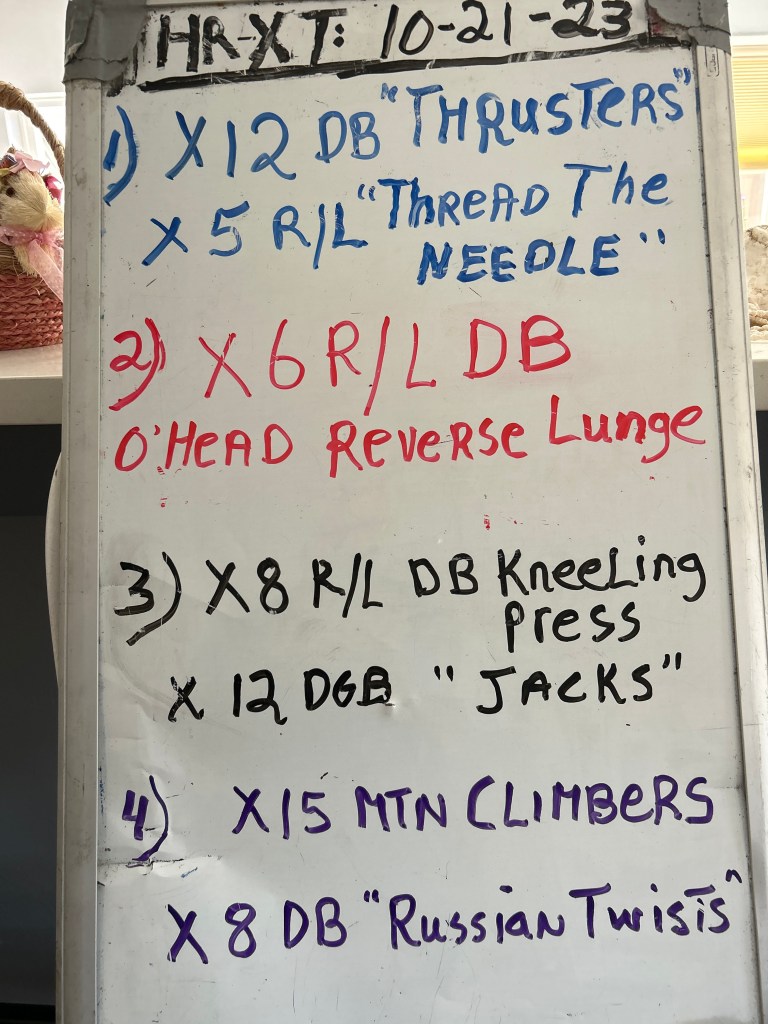 HR-XT: 10-21-23
1) X 12 DB "THRUSTERS"
X 5 R/L "THREAD The
NEEDLE"
2) X 6 R/L DB
O'HEAD REVERSE Lunge
3) X 8 R/L DB KneeLing
Press
X 12 DGB "JACKS"
4) X 15 MTN CLIMBERS
X 8 DB "Russian Twists"